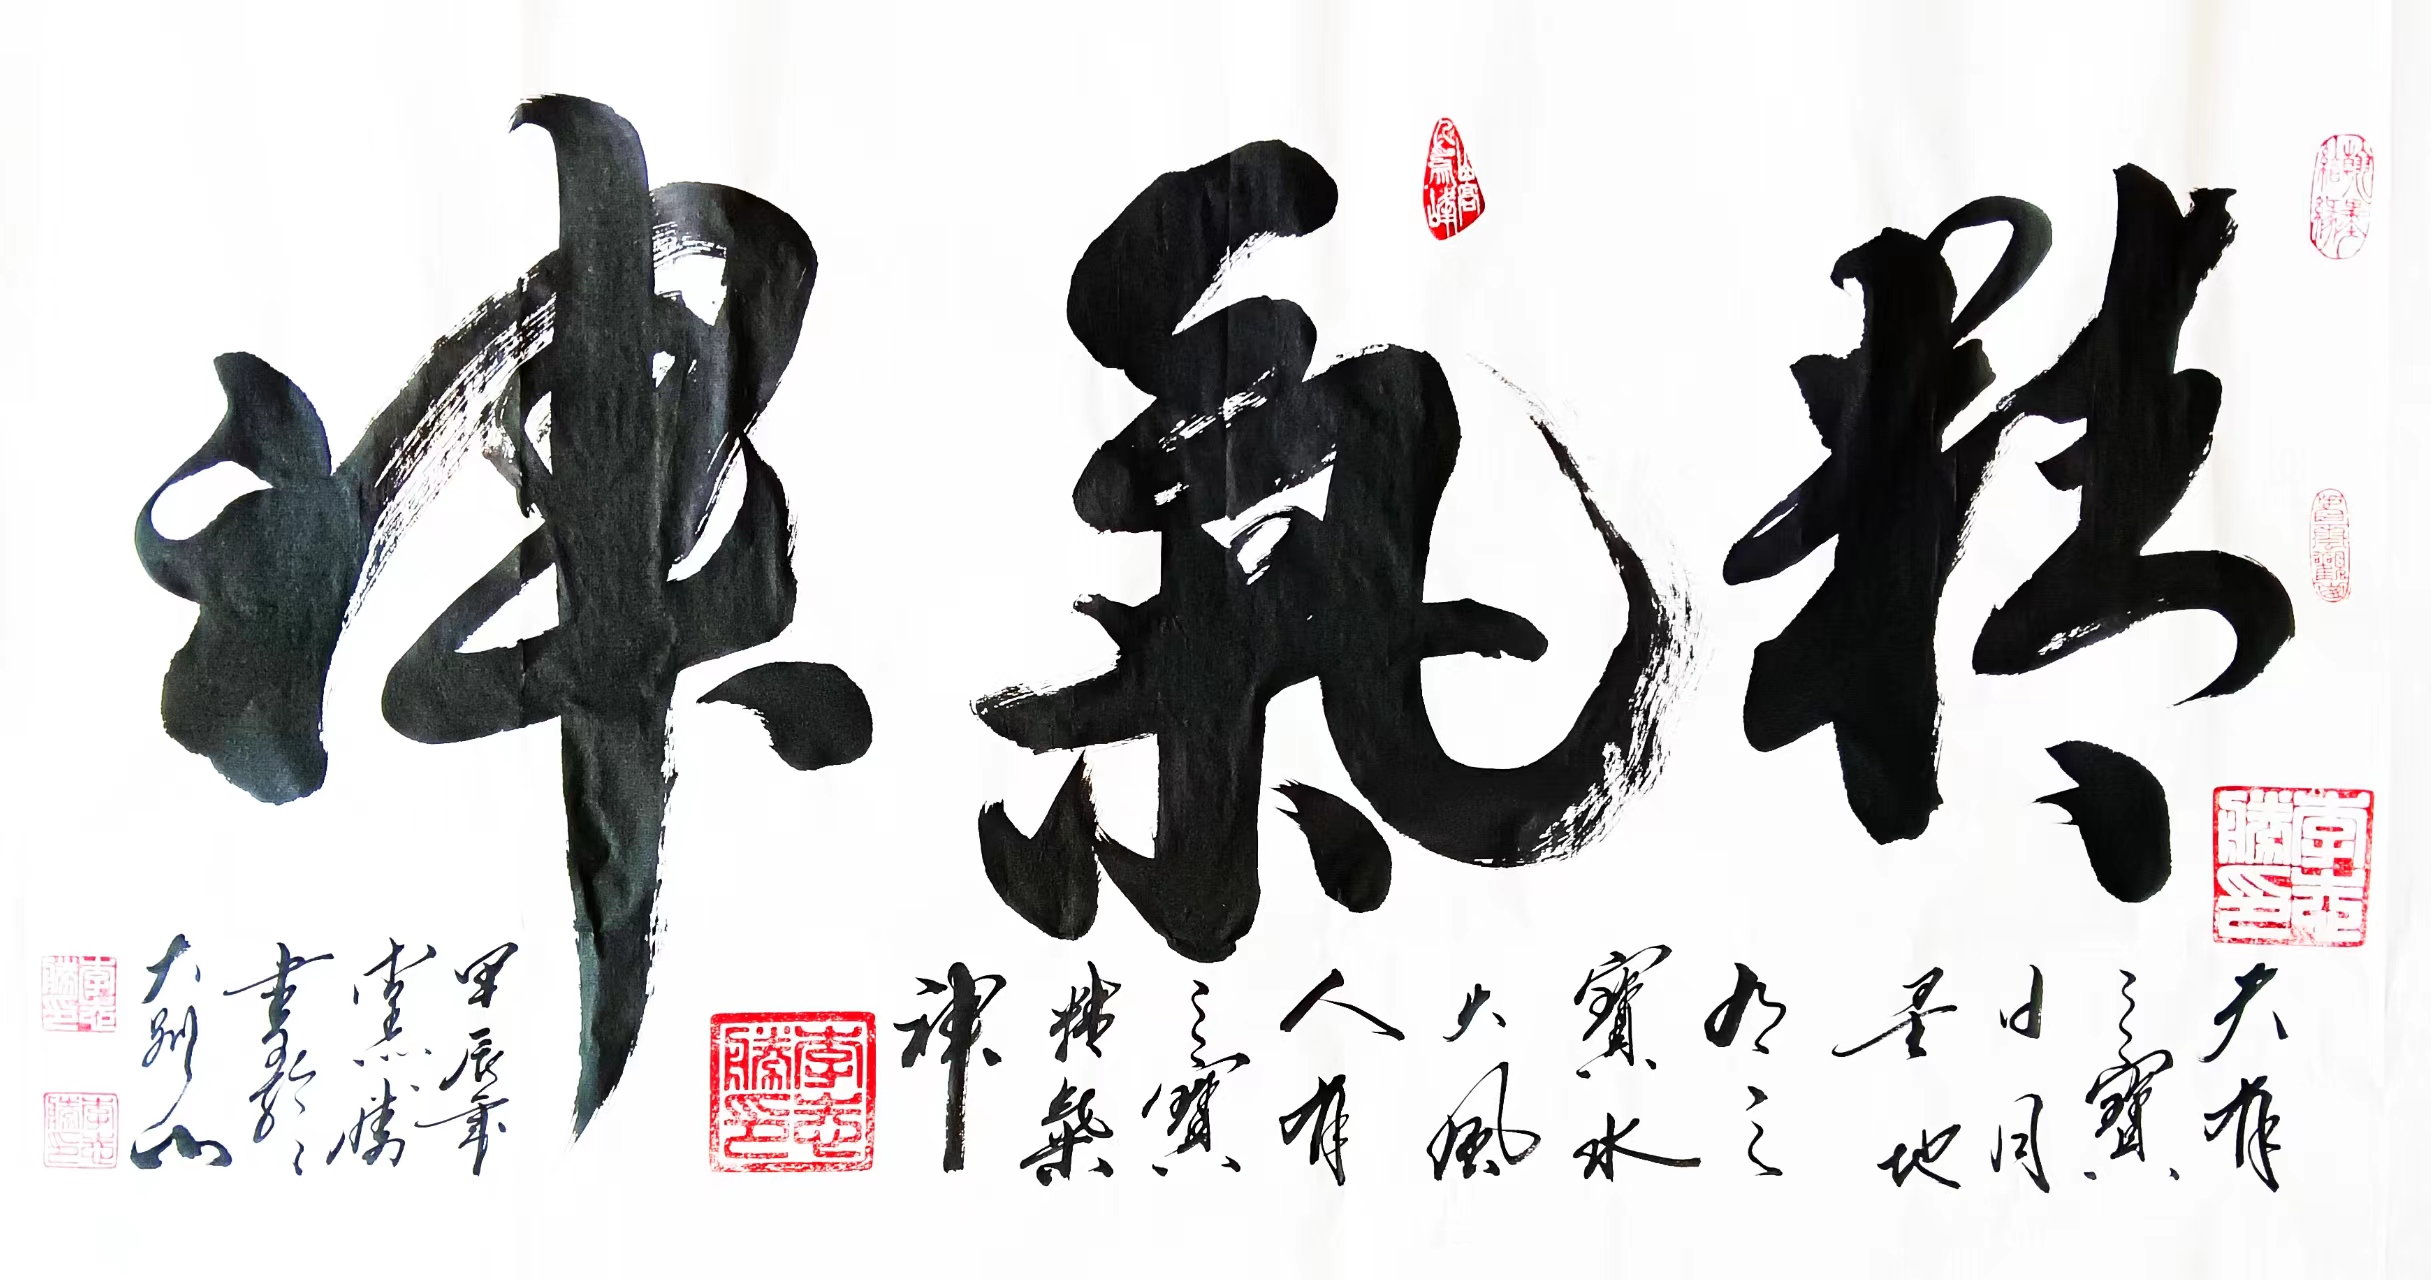 精氣神
翰墨結緣
天有
三寶
日月
星地
有三
寶水
火風
人有
三寶
精氣
神
甲辰年
李志勝
書於
大別山
李志勝印
李志勝印
李志勝印
李志勝印